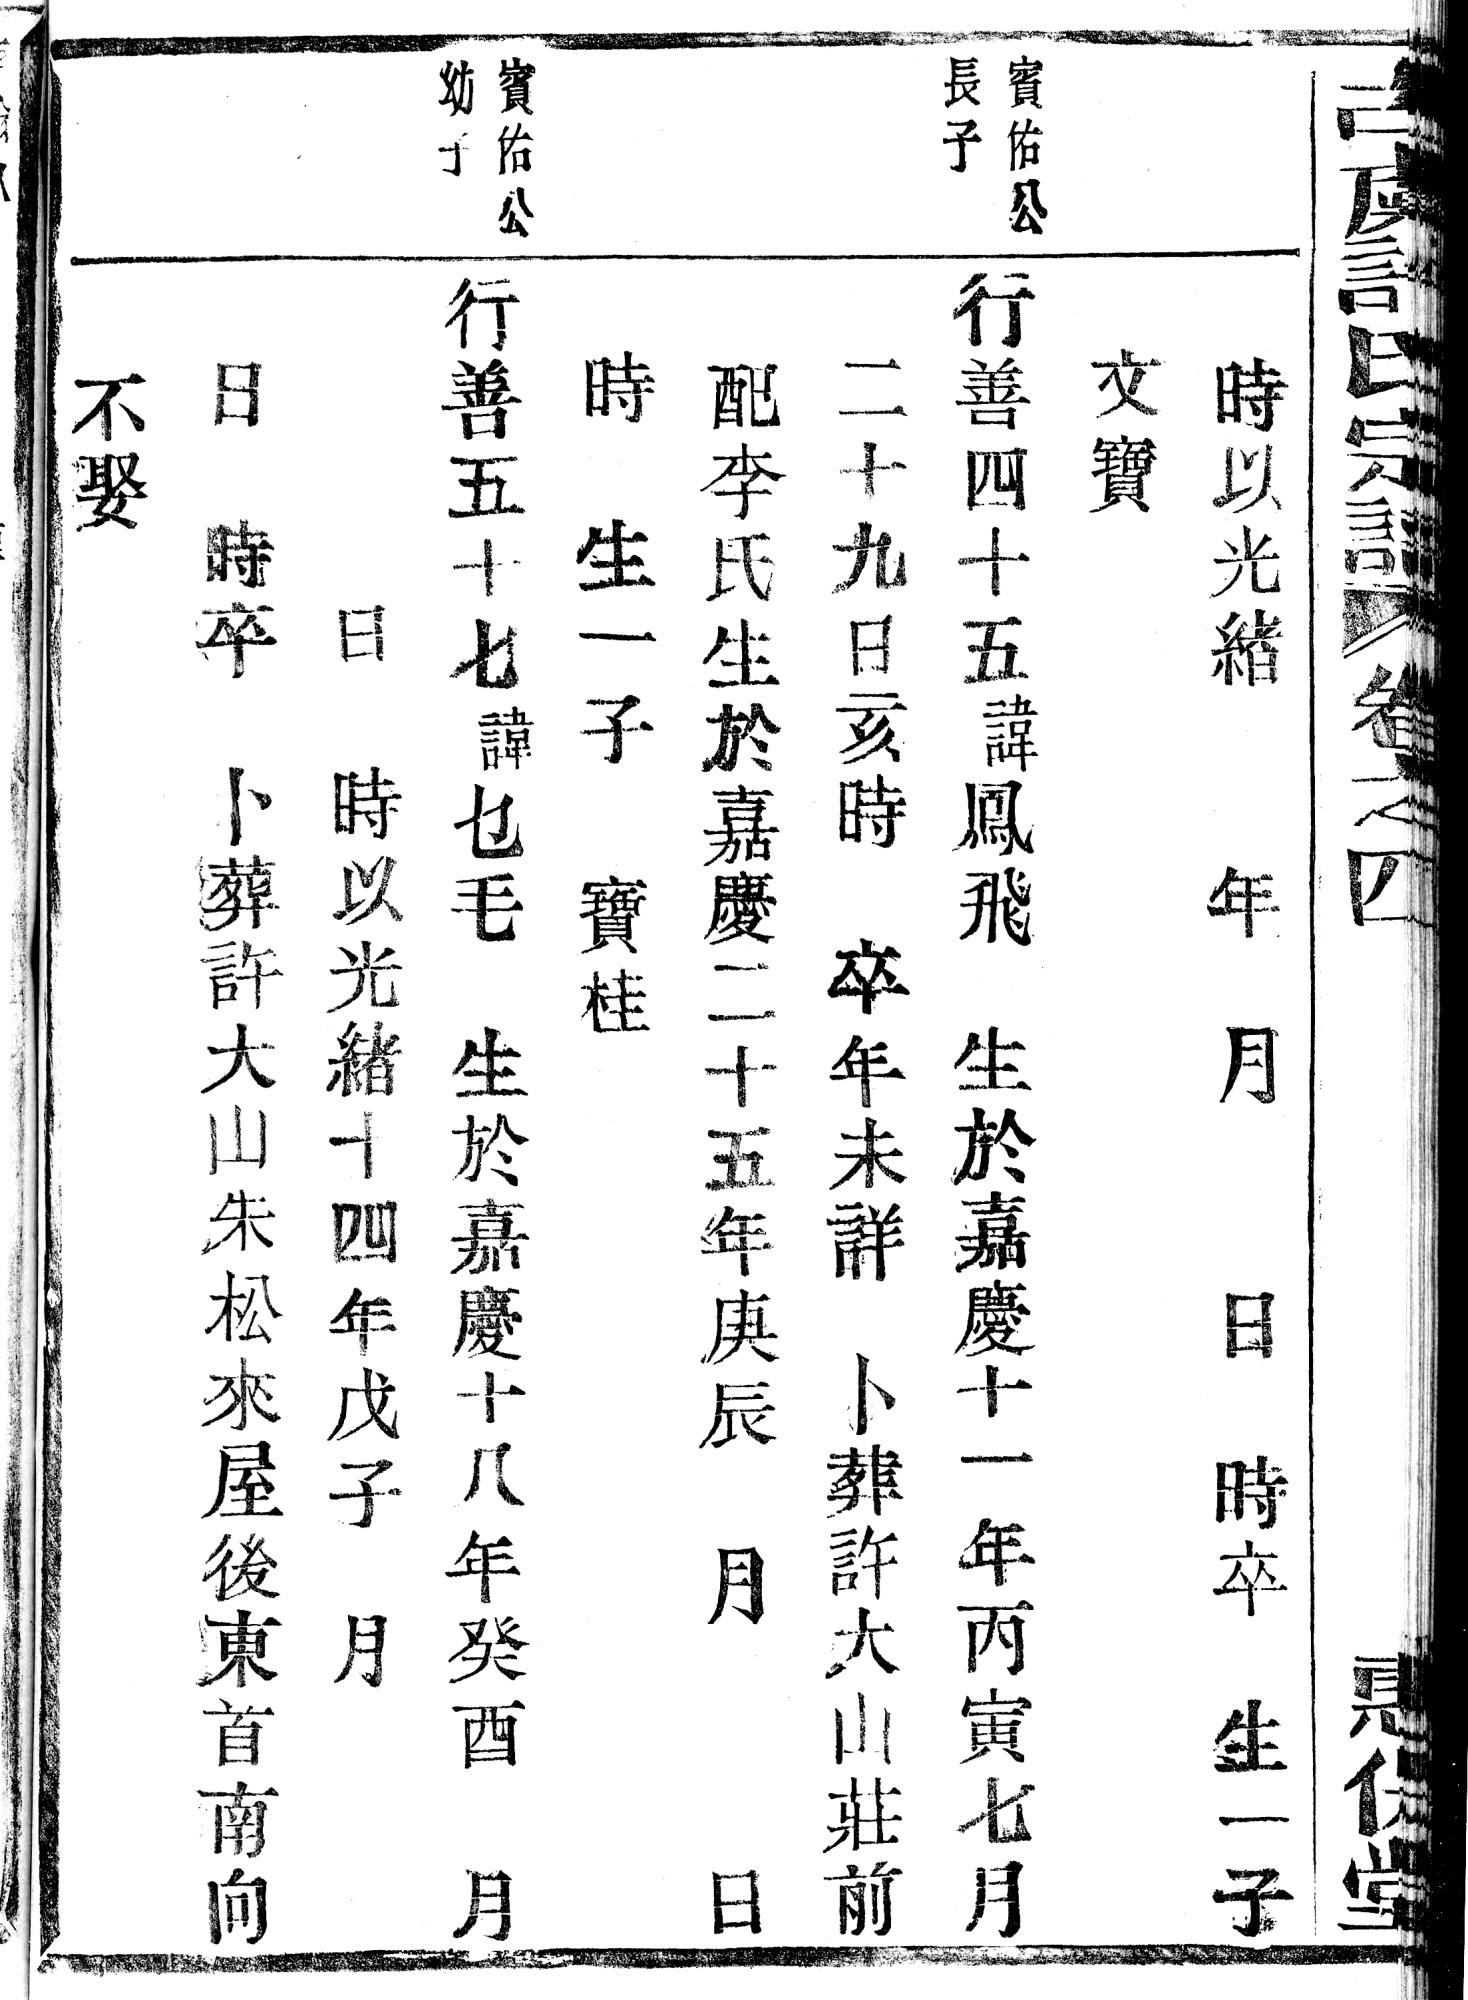 許氏宗譜 卷之四
時以光緒 年 月 日 時卒 生一子
文寶
賓佑公
長子
行善四十五諱鳳飛 生於嘉慶十一年丙寅七月
二十九日亥時 卒年未詳 卜葬許大山莊前
配李氏生於嘉慶二十五年庚辰 月 日
時 生一子 寶桂
賓佑公
幼子
行善五十七諱乜毛 生於嘉慶十八年癸酉 月
日 時以光緒十四年戊子 月
日 時卒 卜葬許大山朱松來屋後東首南向
不娶